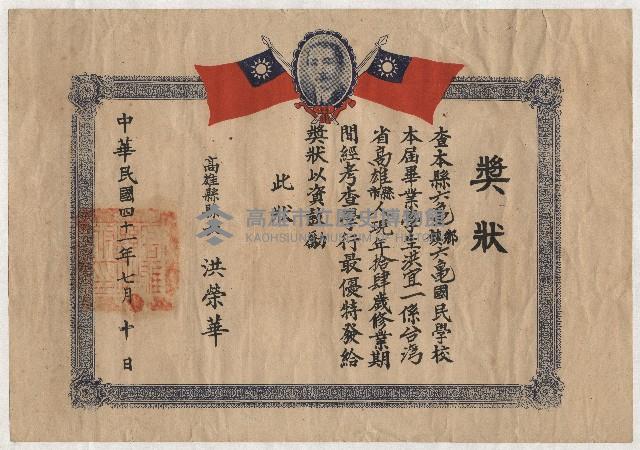 獎狀
查本縣六龜鄉鎮六龜國民學校
本屆畢業學生洪宜一係台灣
省高雄縣市人現年拾肆歲修業期
間經考查 行最優特發給
獎狀以資鼓勵
此狀
高雄縣縣長 洪榮華
中華民國四十一年七月 十日
高雄市立歷史博物館
KAOHSIUNG MUSEUM OF HISTORY